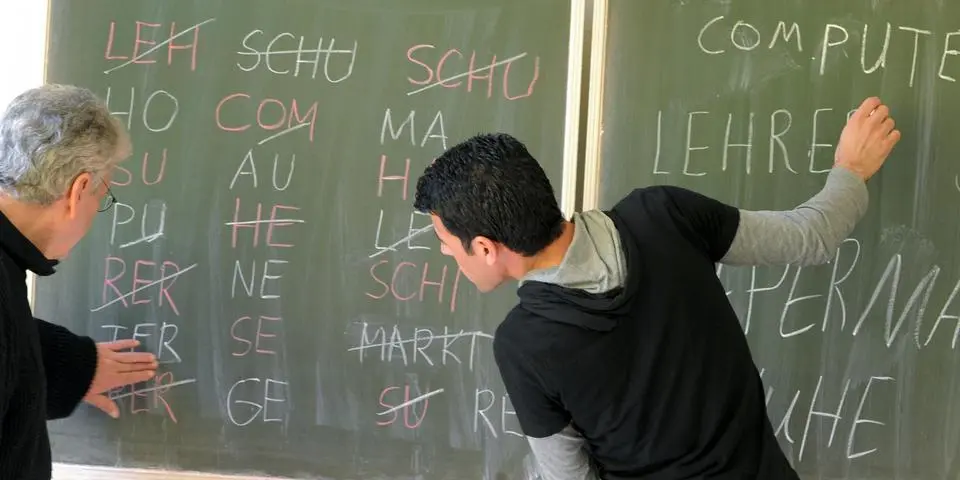 LEH SCHU SCHU
HO COM MA
SU AU H
PU HE LE
RER NE SCH
TER SE MARKT
ER GE SU RE
COMPUTE
LEHRE
PERMA
UHE